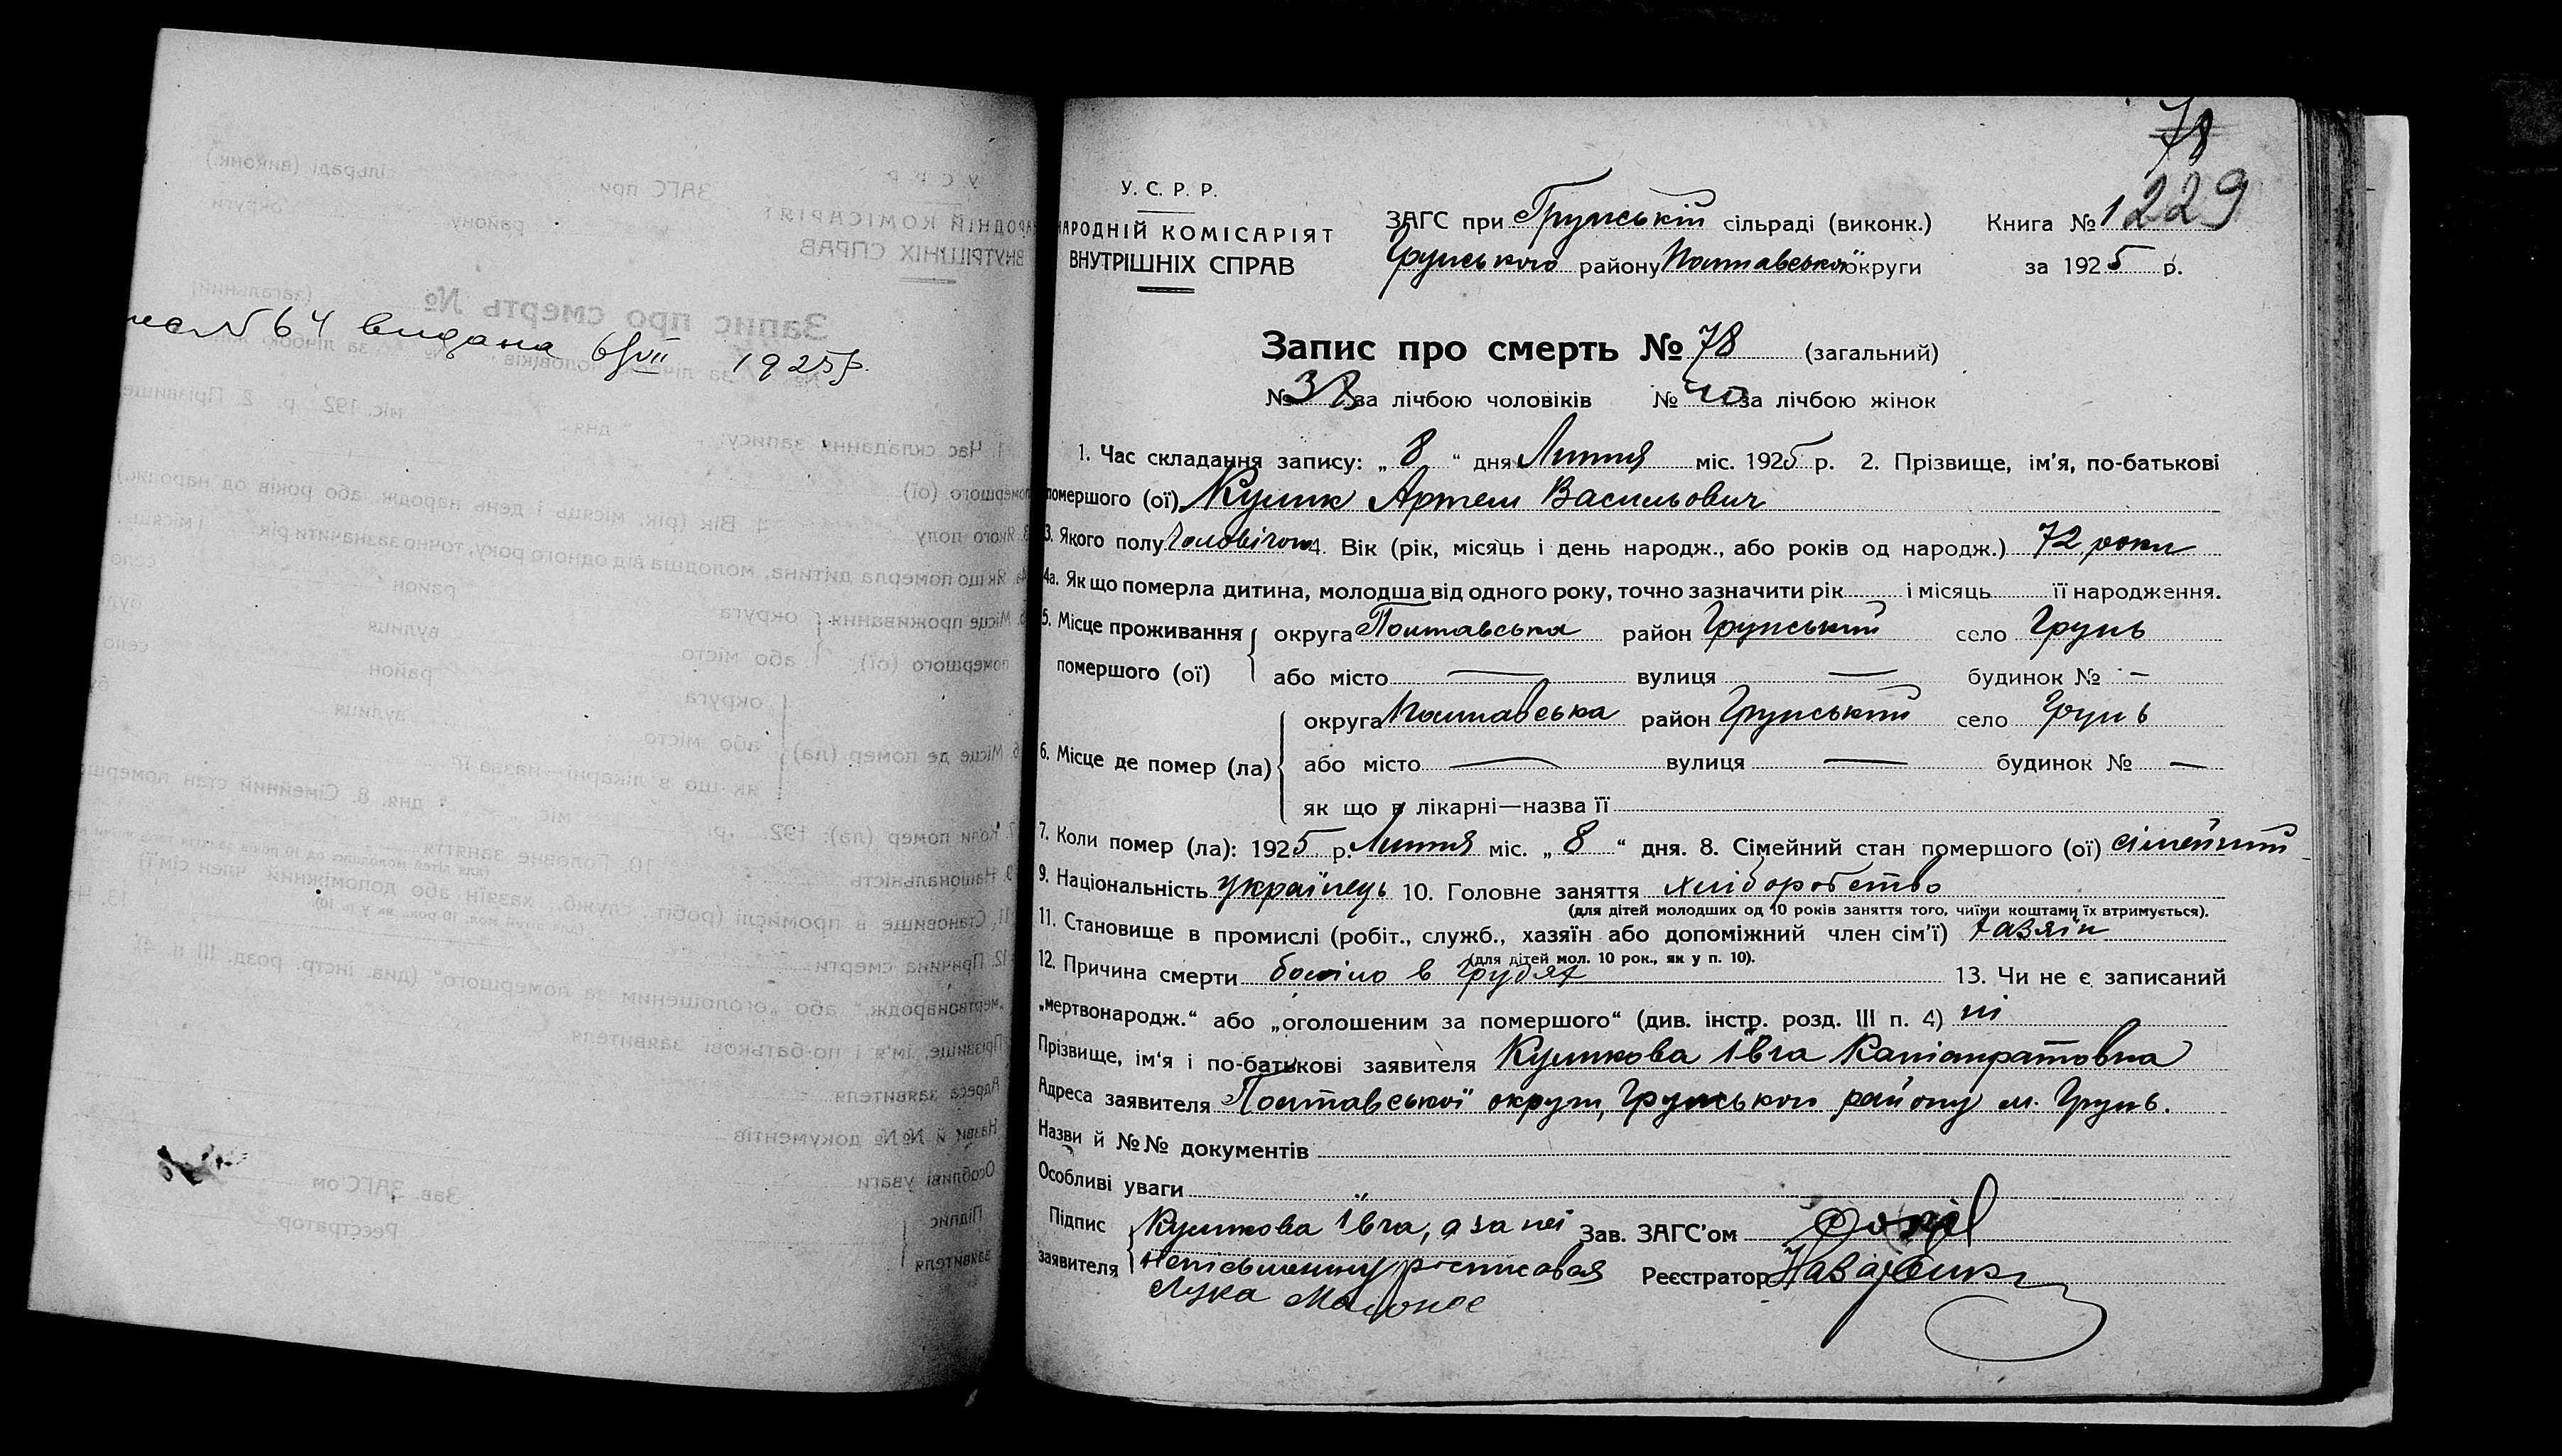 № 64 видана 6/VII 1925 р.
78
229
У. С. Р. Р.
НАРОДНІЙ КОМІСАРІЯТ
ВНУТРІШНІХ СПРАВ
ЗАГС при Грунській сільраді (виконк.) Книга № 1
Грунського району Полтавської округи за 1925 р.
Запис про смерть № 78 (загальний)
№ 38 за лічбою чоловіків № 40 за лічбою жінок
1. Час складання запису: „ 8 “ дня Липня міс. 1925 р. 2. Прізвище, ім’я, по-батькові
помершого (ої) Кулик Артем Васильович
3. Якого полу Чоловічого 4. Вік (рік, місяць і день народж., або років од народж.) 72 роки
4а. Як що померла дитина, молодша від одного року, точно зазначити рік і місяць її народження.
5. Місце проживання помершого (ої) округа Полтавська район Грунський село Грунь
або місто — вулиця — будинок № —
6. Місце де помер (ла) округа Полтавська район Грунський село Грунь
або місто — вулиця — будинок № —
як що в лікарні—назва її
7. Коли помер (ла): 1925 р. Липня міс. „ 8 “ дня. 8. Сімейний стан помершого (ої) сімейний
9. Національність українець 10. Головне заняття хліборобство
(для дітей молодших од 10 років заняття того, чиїми коштами їх втримується).
11. Становище в промислі (робіт., служб., хазяїн або допоміжний член сім’ї) хазяїн
(для дітей мол. 10 рок., як у п. 10).
12. Причина смерти боліло в грудях 13. Чи не є записаний
„мертвонародж.“ або „оголошеним за помершого“ (див. інстр. розд. III п. 4) ні
Прізвище, ім‘я і по-батькові заявителя Куликова Івга Калістратовна
Адреса заявителя Полтавської округи, Грунського району м. Грунь.
Назви й №№ документів
Особливі уваги „
Підпис заявителя Куликова Івга, а за неї Зав. ЗАГС’ом
неписьменну росписовая Реєстратор
Лука